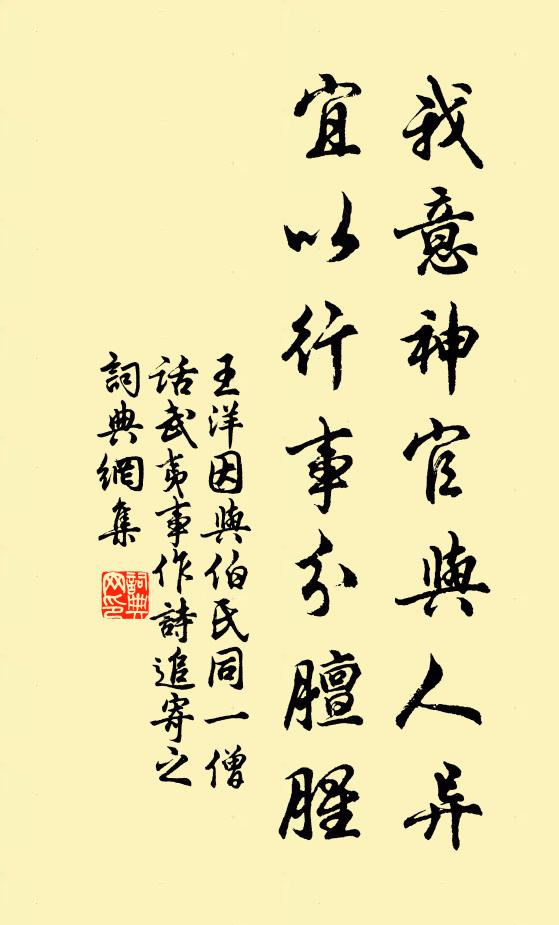 我意神官與人异
宜以行事分膻腥
王洋因與伯氏同一僧
话武夷事作詩追寄之
詞典網集
詞典网印